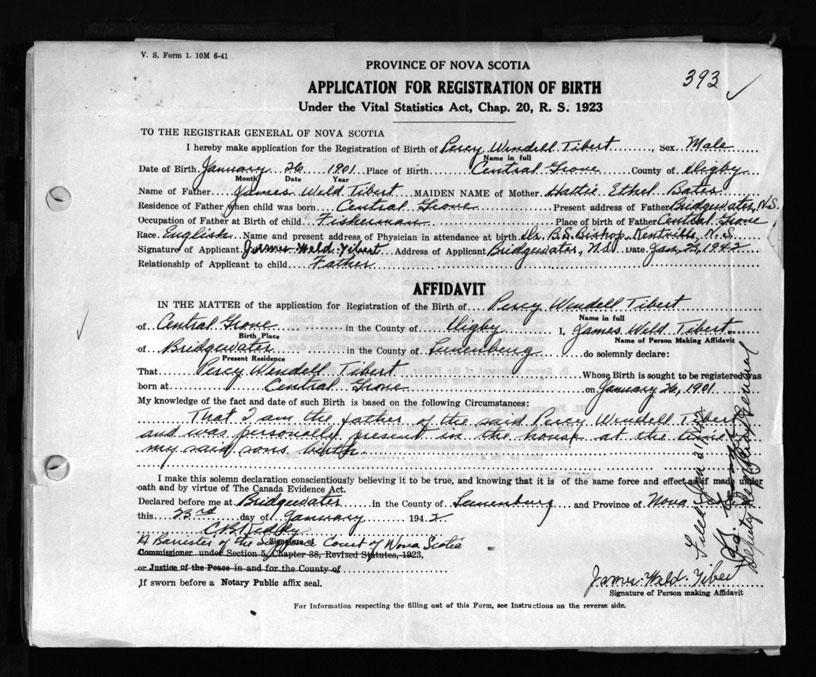 V. S. Form 1. 10M 6-41
PROVINCE OF NOVA SCOTIA
393 ✓
APPLICATION FOR REGISTRATION OF BIRTH
Under the Vital Statistics Act, Chap. 20, R. S. 1923
TO THE REGISTRAR GENERAL OF NOVA SCOTIA
I hereby make application for the Registration of Birth of Percy Wendell Tibert, Sex Male
Name in full
Date of Birth January 26 1901 Place of Birth Central Grove County of Digby
Month Date Year
Name of Father James Weld Tibert MAIDEN NAME of Mother Hattie Ethel Bates
Residence of Father when child was born Central Grove Present address of Father Bridgewater, N.S.
Occupation of Father at Birth of child Fisherman Place of birth of Father Central Grove
Race English Name and present address of Physician in attendance at birth Dr. B.S. Bishop, Kentville, N.S.
Signature of Applicant James Wald Tibert Address of Applicant Bridgewater, N.S. Date Jan. 23, 1942
Relationship of Applicant to child Father
AFFIDAVIT
IN THE MATTER of the application for Registration of the Birth of Percy Wendell Tibert
Name in full
of Central Grove in the County of Digby I, James Weld Tibert
Birth Place Name of Person Making Affidavit
of Bridgewater in the County of Lunenburg do solemnly declare:
Present Residence
That Percy Wendell Tibert Whose Birth is sought to be registered was
born at Central Grove on January 26, 1901
My knowledge of the fact and date of such Birth is based on the following Circumstances:
That I am the father of the said Percy Wendell Tibert
and was personally present in the house at the time
my said sons birth.
I make this solemn declaration conscientiously believing it to be true, and knowing that it is of the same force and effect as if made under
oath and by virtue of The Canada Evidence Act.
Declared before me at Bridgewater in the County of Lunenburg and Province of Nova Scotia
this 23rd day of January 1942
Signature
A Barrister of the Supreme Court of Nova Scotia
Commissioner under Section 5, Chapter 38, Revised Statutes, 1923,
or Justice of the Peace in and for the County of
If sworn before a Notary Public affix seal.
James Wald Tibert
Signature of Person making Affidavit
For Information respecting the filling out of this Form, see Instructions on the reverse side.
Deputy Registrar General